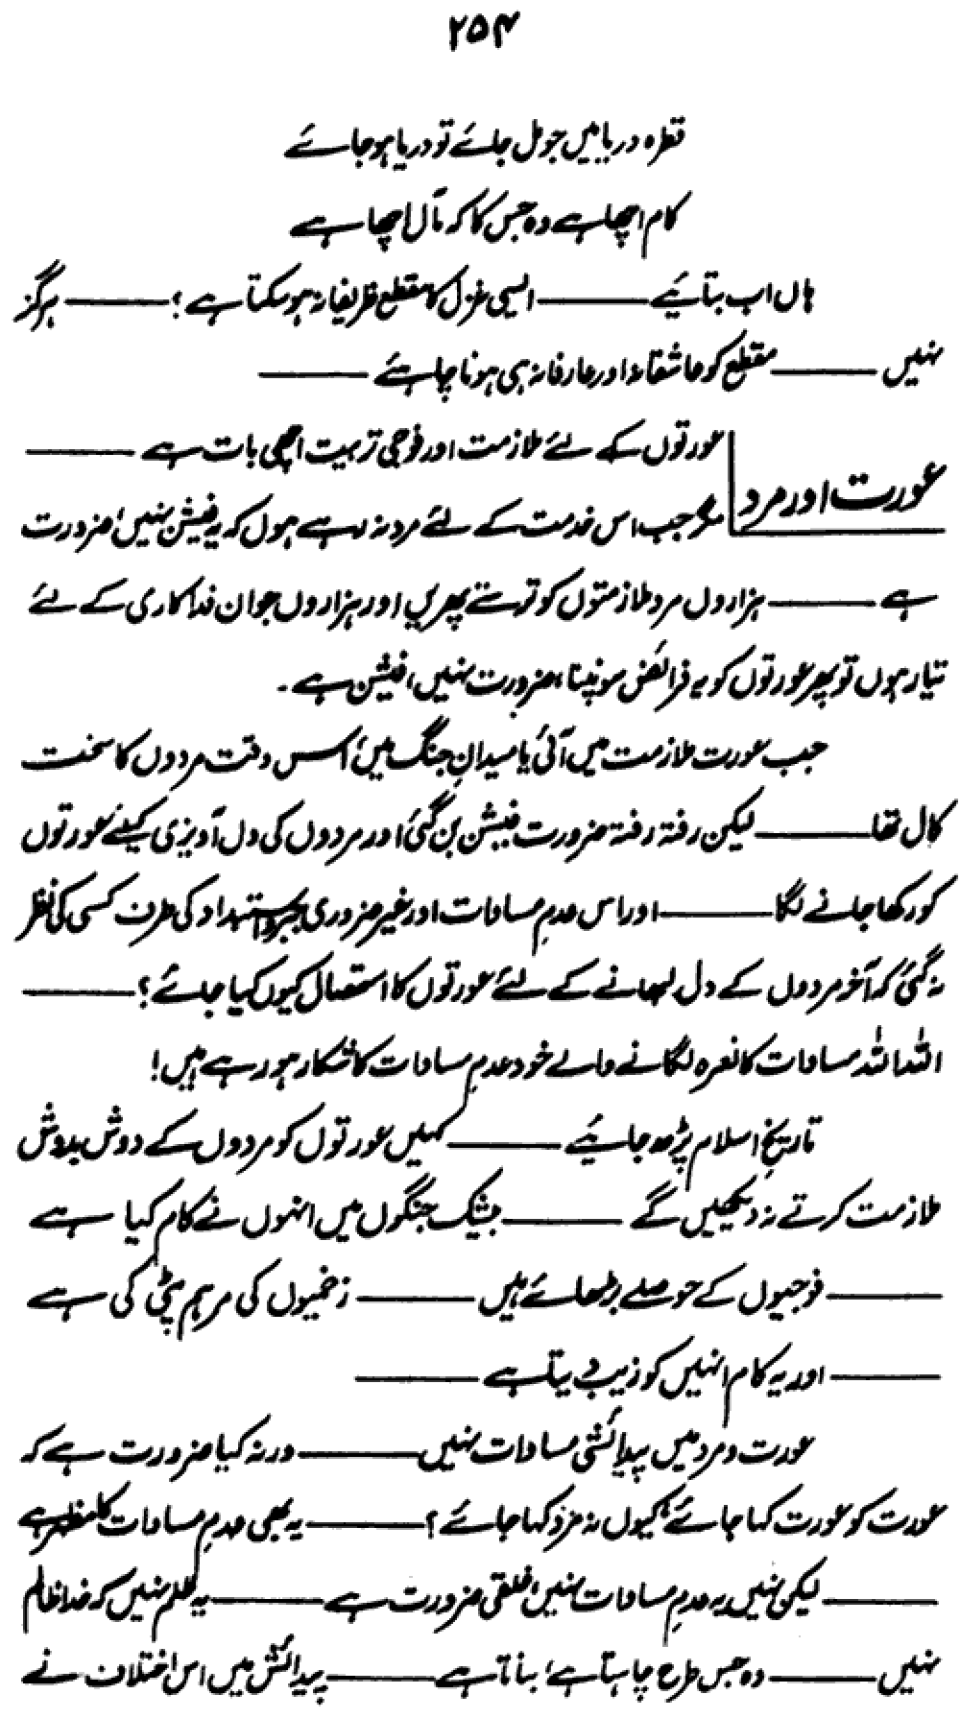 ۲۵۴
قطرہ دریا میں جو مل جائے تو دریا ہو جائے
کام اچھا ہے وہ جس کا کہ مآل اچھا ہے
ہاں اب بتائیے ——— ایسی غزل کا مقطع ظریفانہ ہو سکتا ہے؟ ——— ہرگز
نہیں ——— مقطع کو عاشقانہ اور عارفانہ ہی ہونا چاہئے ———
عورت اور مرد
عورتوں کے لئے ملازمت اور فوجی تربیت اچھی بات ہے ———
مگر جب اس خدمت کے لئے مرد نہ رہے ہوں کہ یہ فیشن نہیں، ضرورت
ہے ——— ہزاروں مرد ملازمتوں کو ترستے پھریں اور ہزاروں جوان فداکاری کے لئے
تیار ہوں تو پھر عورتوں کو یہ فرائض سونپنا، ضرورت نہیں، فیشن ہے۔
جب عورت ملازمت میں آئی یا میدانِ جنگ میں، اس وقت مردوں کا سخت
کال تھا ——— لیکن رفتہ رفتہ ضرورت فیشن بن گئی اور مردوں کی دل آویزی کیلئے عورتوں
کو رکھا جانے لگا ——— اور اس عدمِ مساوات اور غیر ضروری جبر و استبداد کی طرف کسی کی نظر
نہ گئی کہ آخر مردوں کے دل لبھانے کے لئے عورتوں کا استعمال کیوں کیا جائے؟ ———
اللہ اللہ مساوات کا نعرہ لگانے والے خود عدمِ مساوات کا شکار ہو رہے ہیں!
تاریخِ اسلام پڑھ جائیے ——— کہیں عورتوں کو مردوں کے دوش بدوش
ملازمت کرتے نہ دیکھیں گے ——— بیشک جنگوں میں انہوں نے کام کیا ہے
——— فوجیوں کے حوصلے بڑھائے ہیں ——— زخمیوں کی مرہم پٹی کی ہے
——— اور یہ کام انہیں کو زیب دیتا ہے ———
عورت و مرد میں پیدائشی مساوات نہیں ——— ورنہ کیا ضرورت ہے کہ
عورت کو عورت کہا جائے، کیوں نہ مرد کہا جائے؟ ——— یہ بھی عدمِ مساوات کا مظہر ہے
——— لیکن نہیں یہ عدمِ مساوات نہیں، خلقی ضرورت ہے ——— یہ ظلم نہیں کہ خدا ظالم
نہیں ——— وہ جس طرح چاہتا ہے، بناتا ہے ——— پیدائش میں اس اختلاف نے